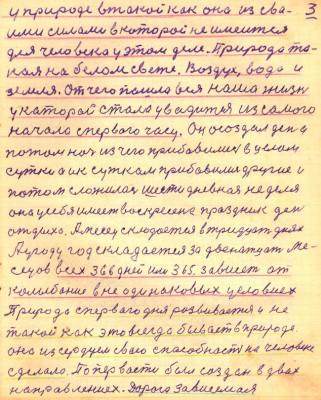 3
у природе в такой как она из сва-
ими силами в каторой не имеится
для человека у этом деле. Природа та-
кая на белом свете. Воздух, вода и
земля. От чего пошла вся наша жизн
у каторой стала увадится из самого
начала с первого часу. Он создал ден а
потом ноч из чего прибавили в целом
сутки а и к суткам прибавили другие и
потом сложилас шести дневная неделя
она у себя имеет воскресение праздник ден
отдыха. А месец склодается в тридцать днях
А у году год складается за двенатцат Ме-
сецов всех 366 дней или 365. зависит от
колибание в не одинаковых условиях
Природа с первого дня розвивается и не
такой как это всегда бывает в природе.
она из сердцем сваго способности на человике
сделало. По первасти был создан в двах
направлениех. Дорога зависемая